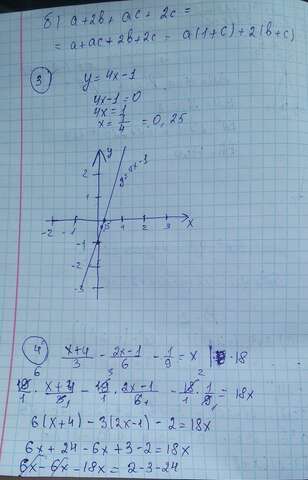 б) a+2b+ac+2c=
=a+ac+2b+2c= a(1+c)+2(b+c)
3
y=4x-1
4x-1=0
4x=1
x=1/4=0,25
y
2
y=4x-1
1
-2 -1 1 2 3 x
-1
-2
-3
4 (x+4)/3 - (2x-1)/6 - 1/9 = x | ·18
6 3 2
18/1 · (x+4)/3 - 18/1 · (2x-1)/6 - 18/1 · 1/9 = 18x
6(x+4)-3(2x-1)-2=18x
6x+24-6x+3-2=18x
6x-6x-18x=2-3-24